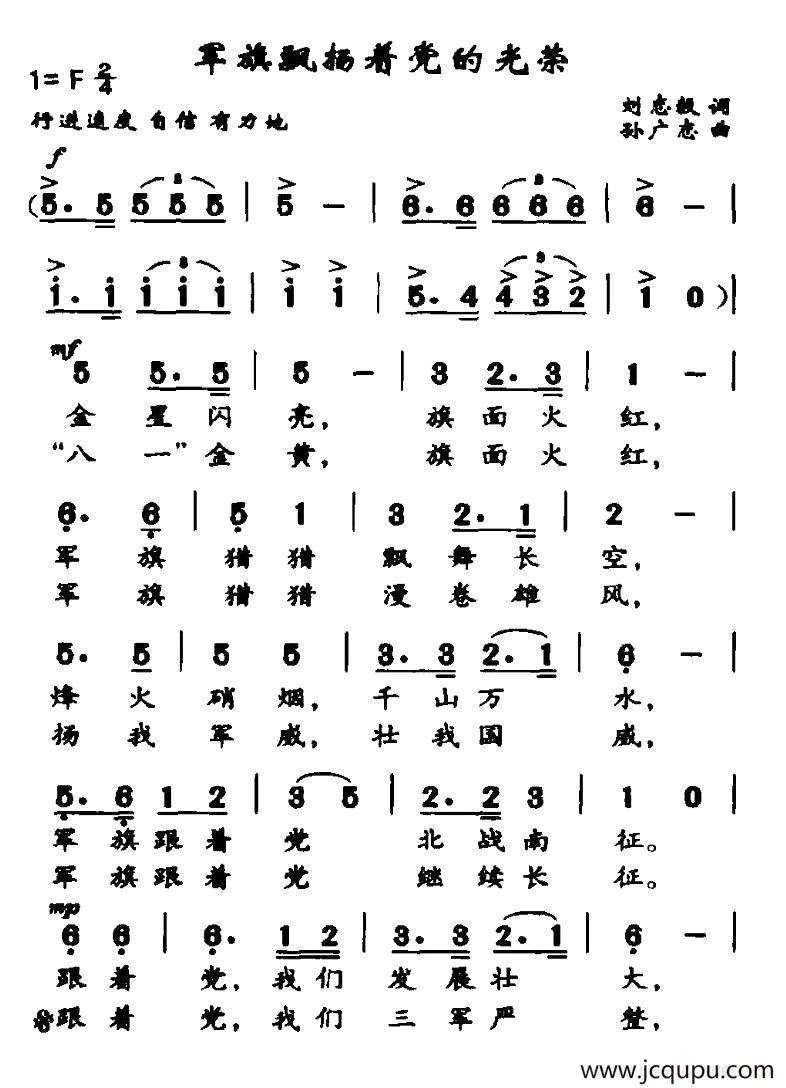 军旗飘扬着党的光荣
1= F 2/4
刘志毅 词
行进速度 自信 有力地
孙广志 曲
f
(5. 5 5 5 5 | 5 - | 6. 6 6 6 6 | 6 - |
3 3
i. i i i i | i i | 5. 4 4 3 2 | 1 0 )|
3 3
mf
5 5. 5 | 5 - | 3 2. 3 | 1 - |
金 星 闪 亮, 旗 面 火 红,
“八 一” 金 黄, 旗 面 火 红,
6. 6 | 5 1 | 3 2. 1 | 2 - |
军 旗 猎 猎 飘 舞 长 空,
军 旗 猎 猎 漫 卷 雄 风,
5. 5 | 5 5 | 3. 3 2. 1 | 6 - |
烽 火 硝 烟, 千 山 万 水,
扬 我 军 威, 壮 我 国 威,
5. 6 1 2 | 3 5 | 2. 2 3 | 1 0 |
军 旗 跟 着 党 北 战 南 征。
军 旗 跟 着 党 继 续 长 征。
mp
6 6 | 6. 1 2 | 3. 3 2. 1 | 6 - |
跟 着 党, 我 们 发 展 壮 大,
※跟 着 党, 我 们 三 军 严 整,
www.jcqupu.com